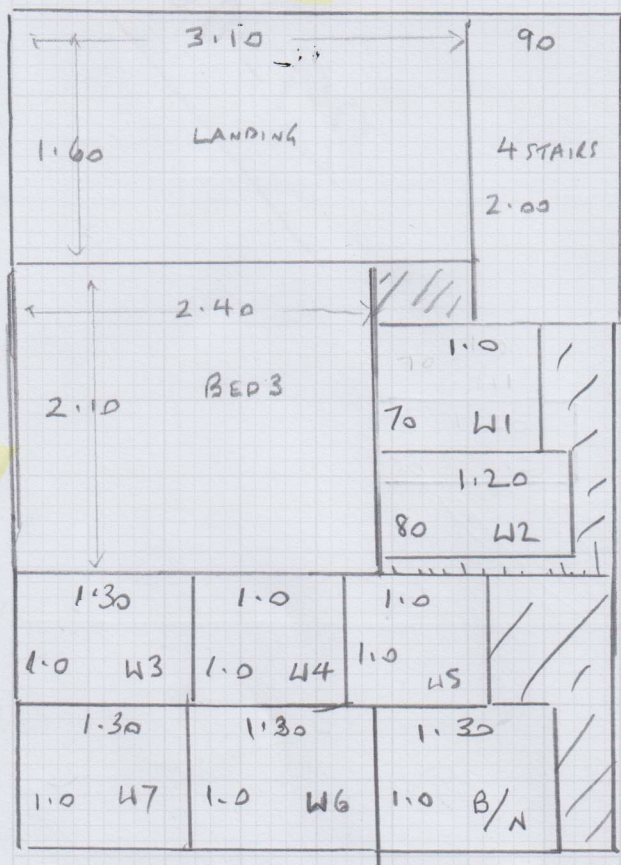 3.10
90
1.60
LANDING
4 STAIRS
2.00
2.40
BED 3
2.10
1.0
70 W1
1.20
80 W2
1.30
1.0 W3
1.0
1.0 W4
1.0
1.0 W5
1.30
1.0 W7
1.30
1.0 W6
1.30
1.0 B/N